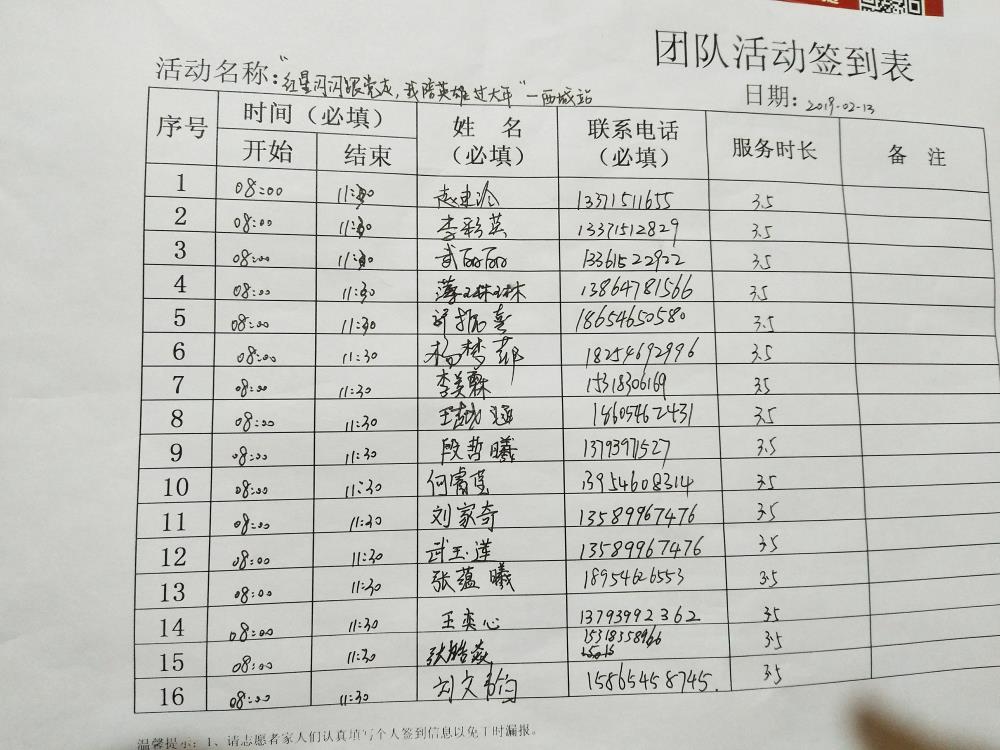 团队活动签到表
活动名称:"红星闪闪跟党走,我陪英雄过大年"一西城站
日期: 2019-02-13
序号 时间(必填) 姓 名(必填) 联系电话(必填) 服务时长 备 注
开始 结束
1 08:00 11:30 13371511655 3.5
2 08:00 11:30 李彩英 13371512829 3.5
3 08:00 11:30 武丽丽 13361522922 3.5
4 08:00 11:30 薄琳琳 13864781566 3.5
5 08:00 11:30 许振喜 18654650580 3.5
6 08:00 11:30 杨梦 18254692996 3.5
7 08:00 11:30 李美霖 15318306169 3.5
8 08:00 11:30 王 涵 18605462431 3.5
9 08:00 11:30 段哲曦 13793971527 3.5
10 08:00 11:30 何睿莹 13954608314 3.5
11 08:00 11:30 刘家奇 13589967476 3.5
12 08:00 11:30 武玉莲 13589967476 3.5
13 08:00 11:30 张蕴曦 18954626553 3.5
14 08:00 11:30 王奕心 13793992362 3.5
15 08:00 11:30 张皓焱 3.5
16 08:00 11:30 刘文韵 15865458745. 3.5
温馨提示:1、请志愿者家人们认真填写个人签到信息以免工时漏报。